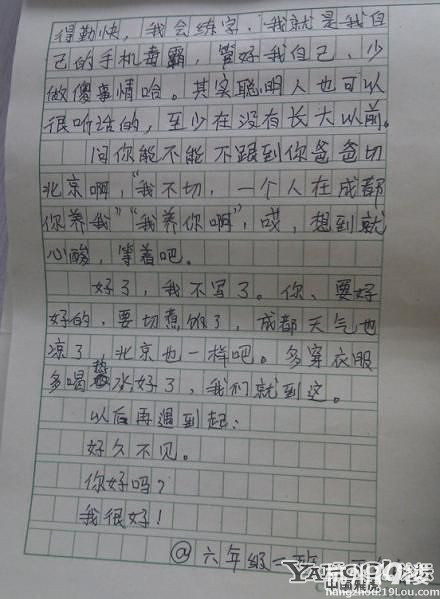 得勤快，我会练字，我就是我自
己的手机毒霸，管好我自己、少
做傻事情哈。其实聪明人也可以
很听话的，至少在没有长大以前。
问你能不能不跟到你爸爸切
北京啊，"我不切，一个人在成都
你养我""我养你啊"，哎，想到就
心酸，等着吧。
好了，我不写了。你、要好
好的，要切煮饭了，成都天气也
凉了，北京也一样吧。多穿衣服
多喝热水好了，我们就到这。
以后再遇到起：
好久不见。
你好吗？
我很好！
@六年级二班
hangzhou.19Lou.com